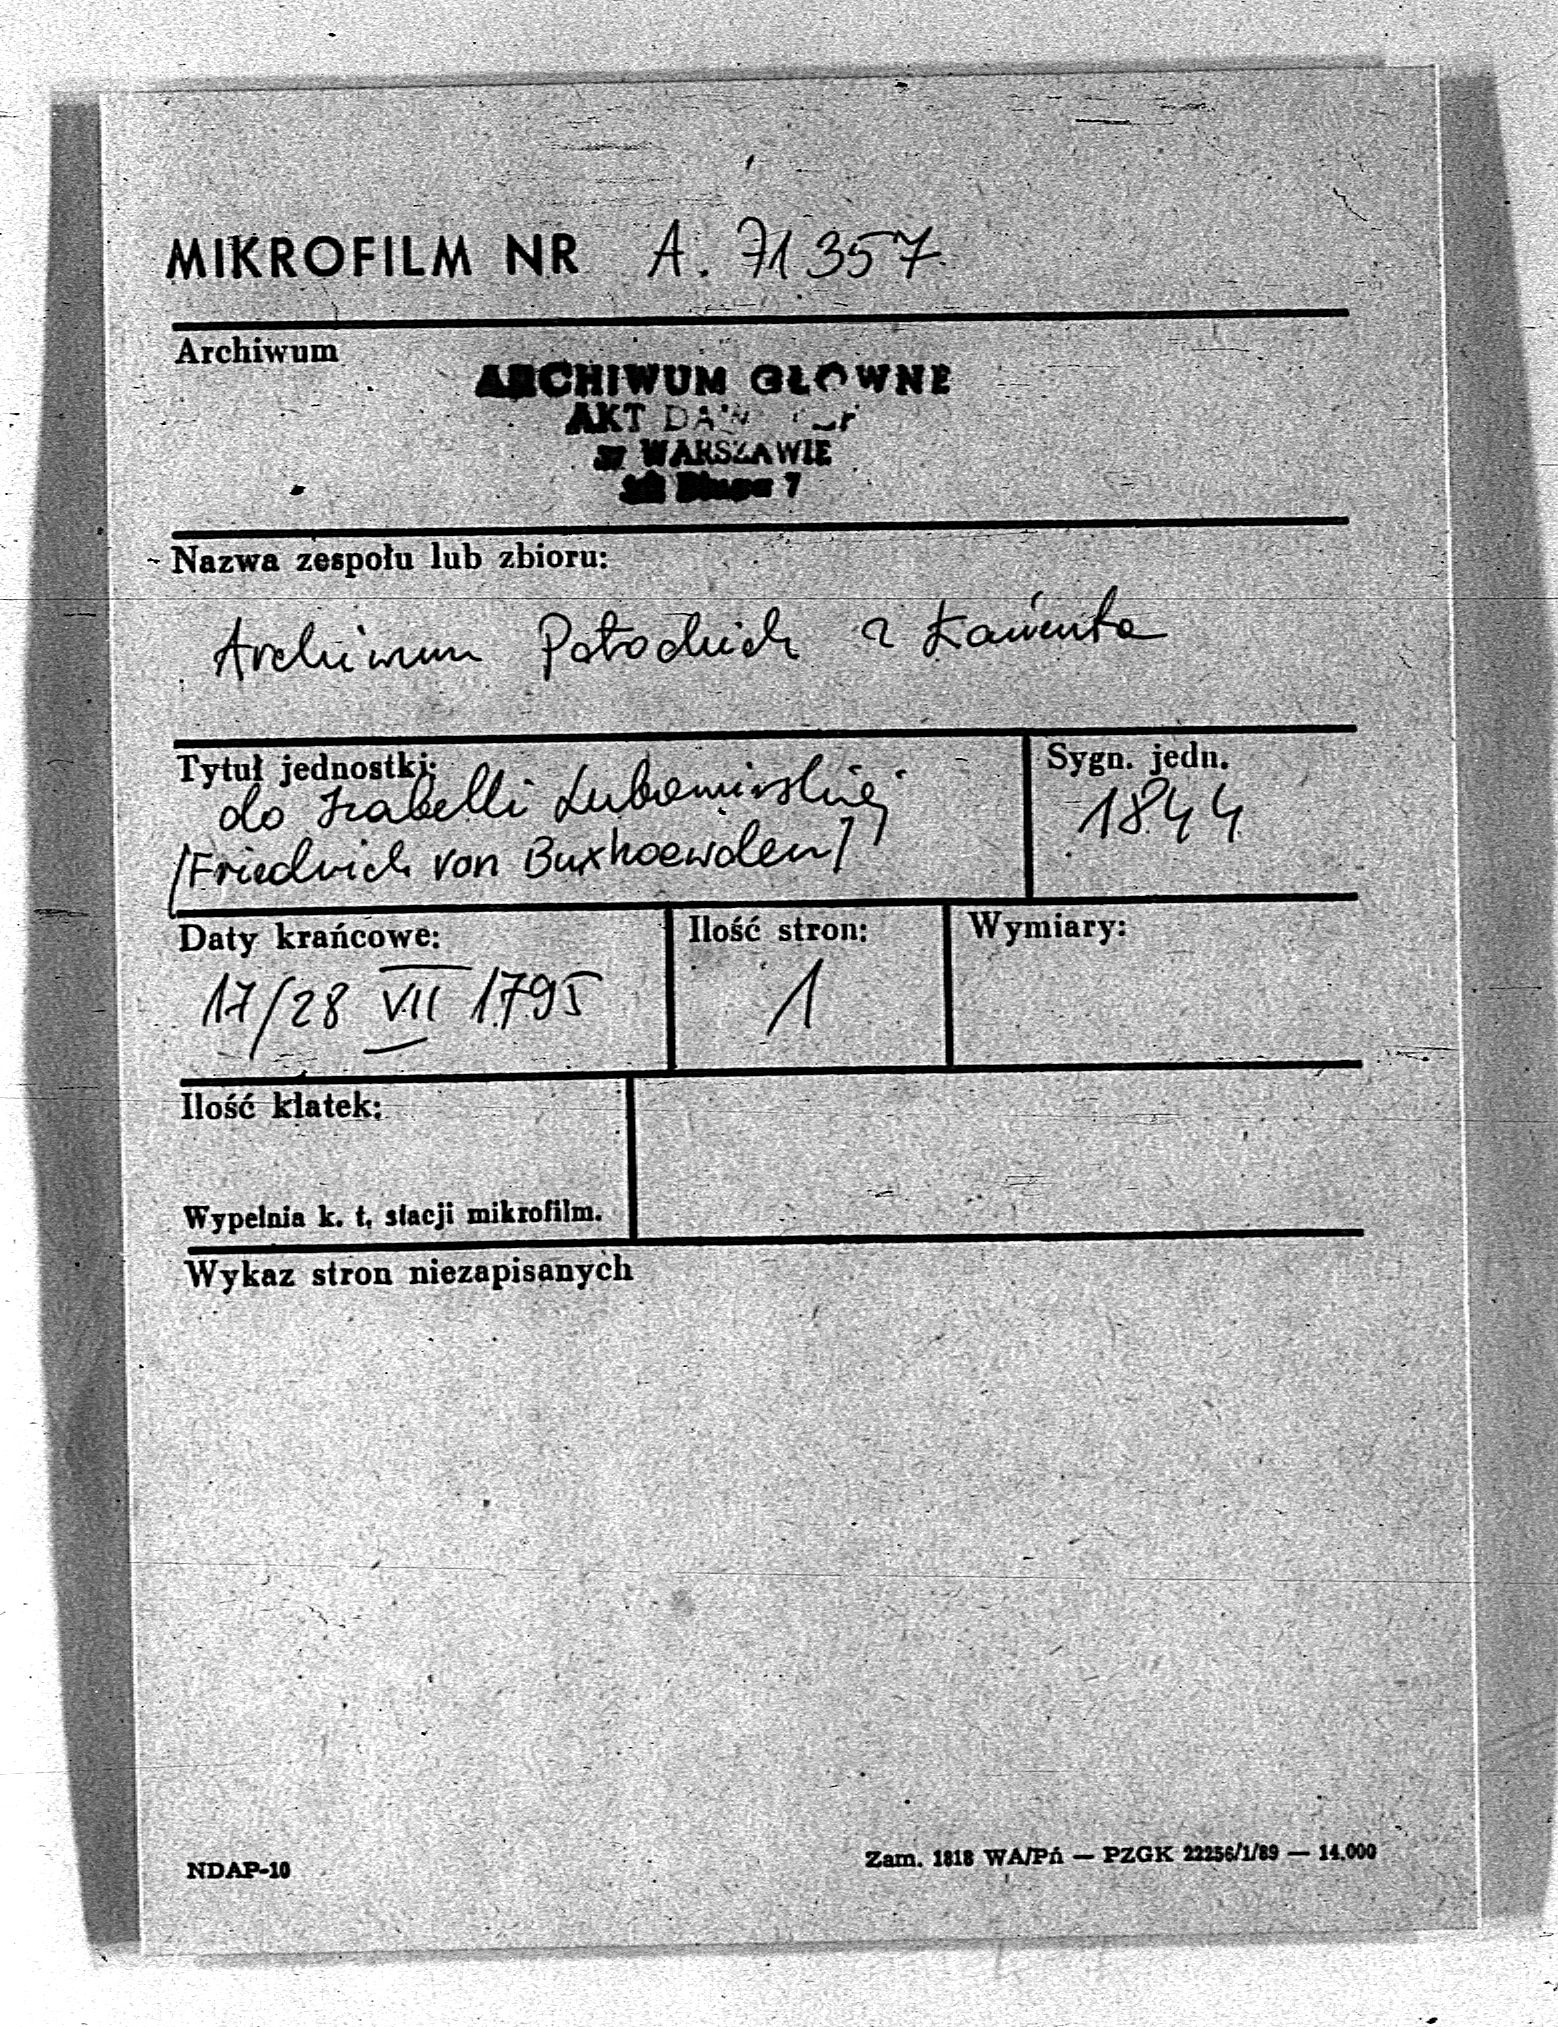 MIKROFILM NR A. 71357
Archiwum
ARCHIWUM GŁÓWNE
AKT
W WARSZAWIE
7
Nazwa zespołu lub zbioru:
Archiwum Potockich z Łańcuta
Tytuł jednostki:
do Izabelli Lubomirskiej
/Friedrich von Buxhoewden/
Sygn. jedn.
1844
Daty krańcowe:
17/28 VII 1795
Ilość stron:
1
Wymiary:
Ilość klatek:
Wypełnia k. t. stacji mikrofilm.
Wykaz stron niezapisanych
NDAP-10
Zam. 1818 WA/Pń — PZGK 22256/1/89 — 14.000